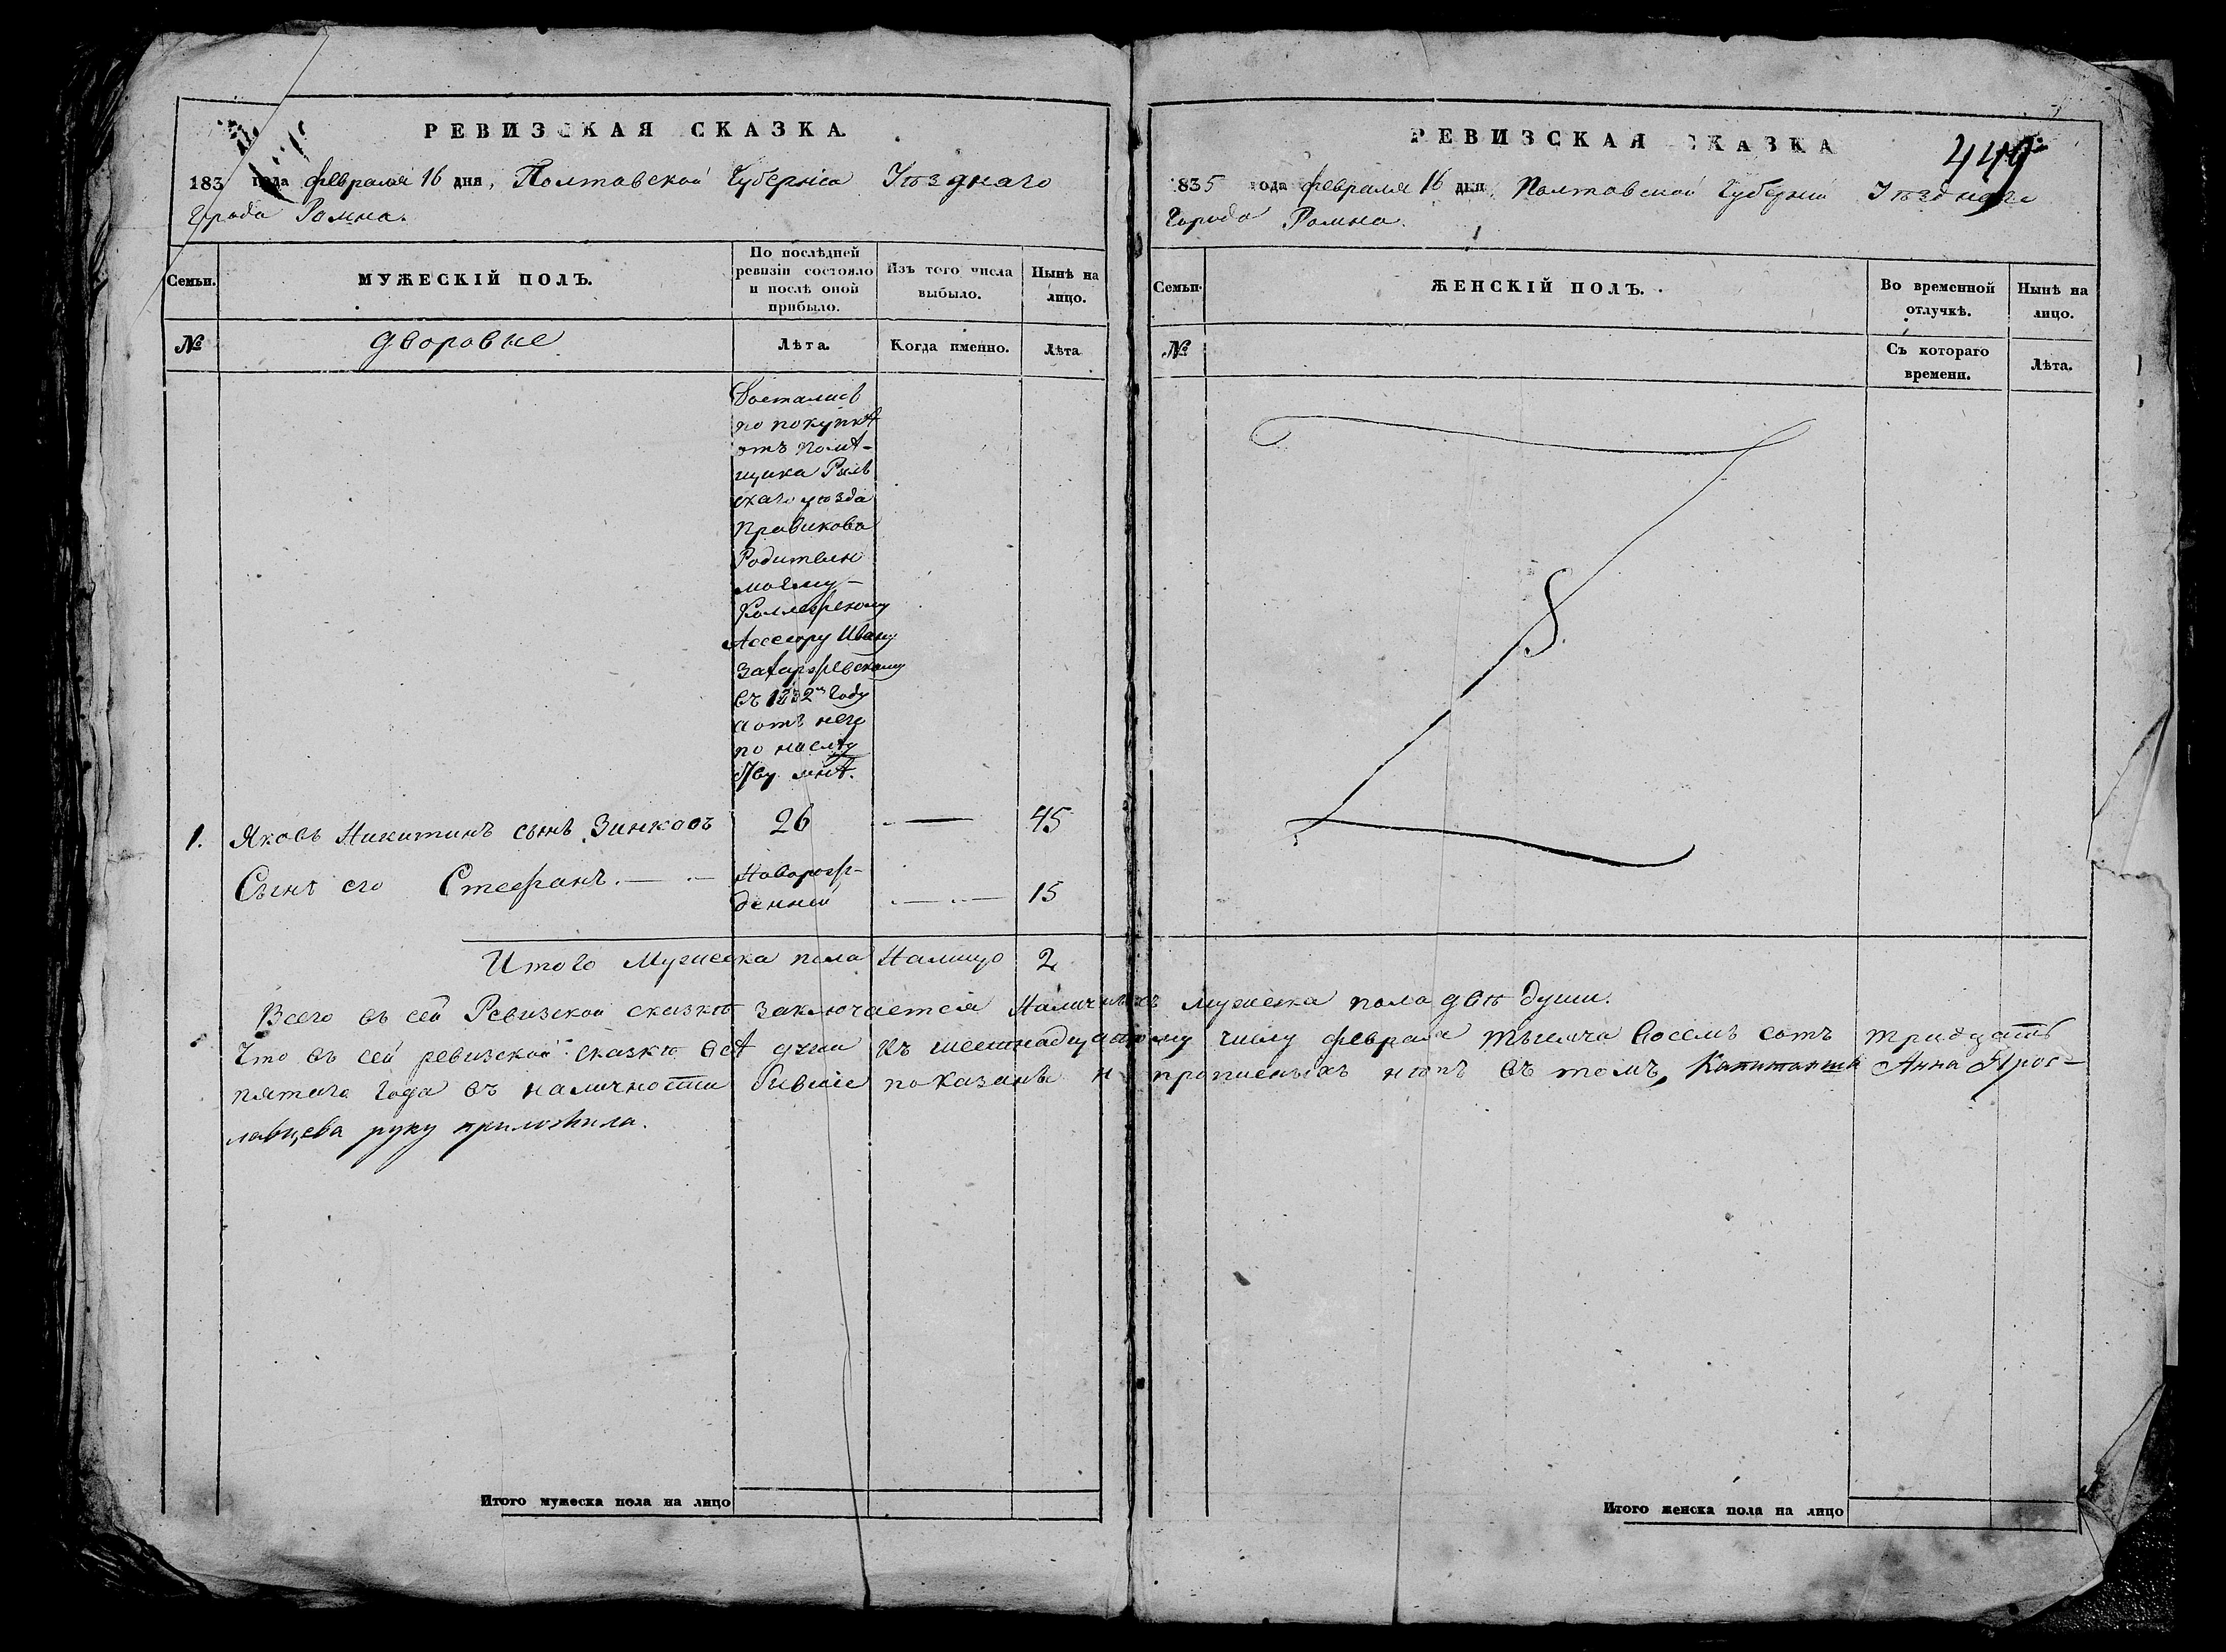 РЕВИЗСКАЯ СКАЗКА.
183 года февраля 16 дня, Полтавской Губерніи Уѣзднаго
Города Ромна.
Семьи.
МУЖЕСКІЙ ПОЛЪ.
По послѣдней
ревизіи состояло
и послѣ оной
прибыло.
Изъ того числа
выбыло.
Нынѣ на
лицо.
№
дворовые
Лѣта.
Когда именно.
Лѣта
Достались
по покупкѣ
отъ помѣ-
щика Рыль
скаго уѣзда
Правикова
Родителю
моему
Коллежскому
Ассесору Ивану
Захаржевскому
въ 1832мъ году
а отъ него
по наслѣд
ству мнѣ.
1. Яковъ Никитинъ сынъ Зинковъ 26 — 45
Сынъ его Стефанъ. — — Новорож-
денный — — 15
Итого Мужеска пола Налицо 2
Всего въ сей Ревизской сказкѣ заключается Наличныхъ мужеска пола двѣ души.
Что въ сей ревизской сказкѣ всѣ души къ шестнадцатому числу февраля тысяча восемь сотъ тридцать
пятого года въ наличности бывшіе показаны и прописныхъ нѣтъ въ томъ, Капитанша Анна Ярос-
лавцева руку приложила.
Итого мужеска пола на лицо
РЕВИЗСКАЯ СКАЗКА
449
1835 года февраля 16 дня Полтавской Губерніи Уѣзднаго
Города Ромна.
Семьи.
ЖЕНСКІЙ ПОЛЪ.
Во временной
отлучкѣ.
Нынѣ на
лицо.
№
Съ котораго
времени.
Лѣта.
Итого женска пола на лицо